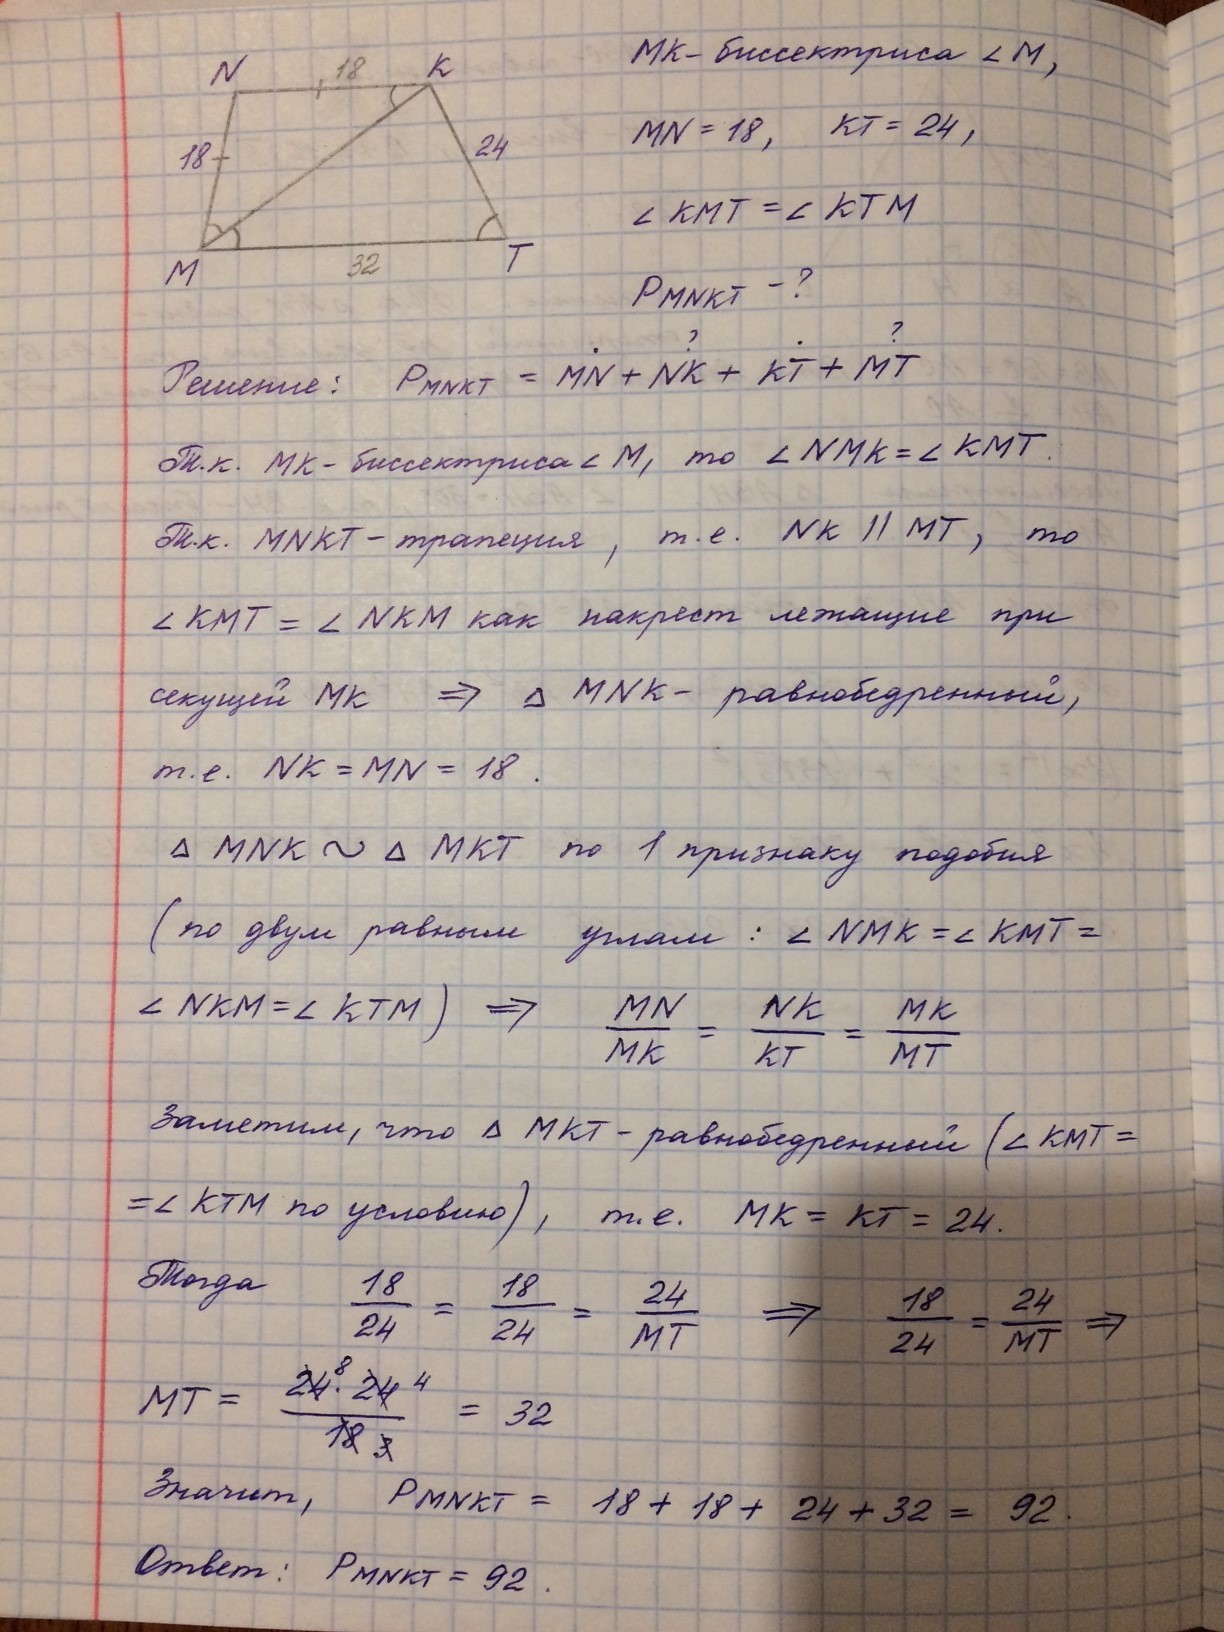 N 18 K
MK - биссектриса ∠M,
18 24
MN = 18, KT = 24,
∠KMT = ∠KTM
M 32 T
P MNKT - ?
? ?
Решение: P MNKT = MN + NK + KT + MT
Т.к. MK - биссектриса ∠M, то ∠NMK = ∠KMT.
Т.к. MNKT - трапеция, т.е. NK || MT, то
∠KMT = ∠NKM как накрест лежащие при
секущей MK ⇒ △ MNK - равнобедренный,
т.е. NK = MN = 18.
△ MNK ~ △ MKT по 1 признаку подобия
(по двум равным углам: ∠NMK = ∠KMT =
∠NKM = ∠KTM) ⇒ MN/MK = NK/KT = MK/MT
Заметим, что △ MKT - равнобедренный (∠KMT =
= ∠KTM по условию), т.е. MK = KT = 24.
Тогда 18/24 = 18/24 = 24/MT ⇒ 18/24 = 24/MT ⇒
MT = 24 8 · 24 4 / 18 3 = 32
Значит, P MNKT = 18 + 18 + 24 + 32 = 92.
Ответ: P MNKT = 92.